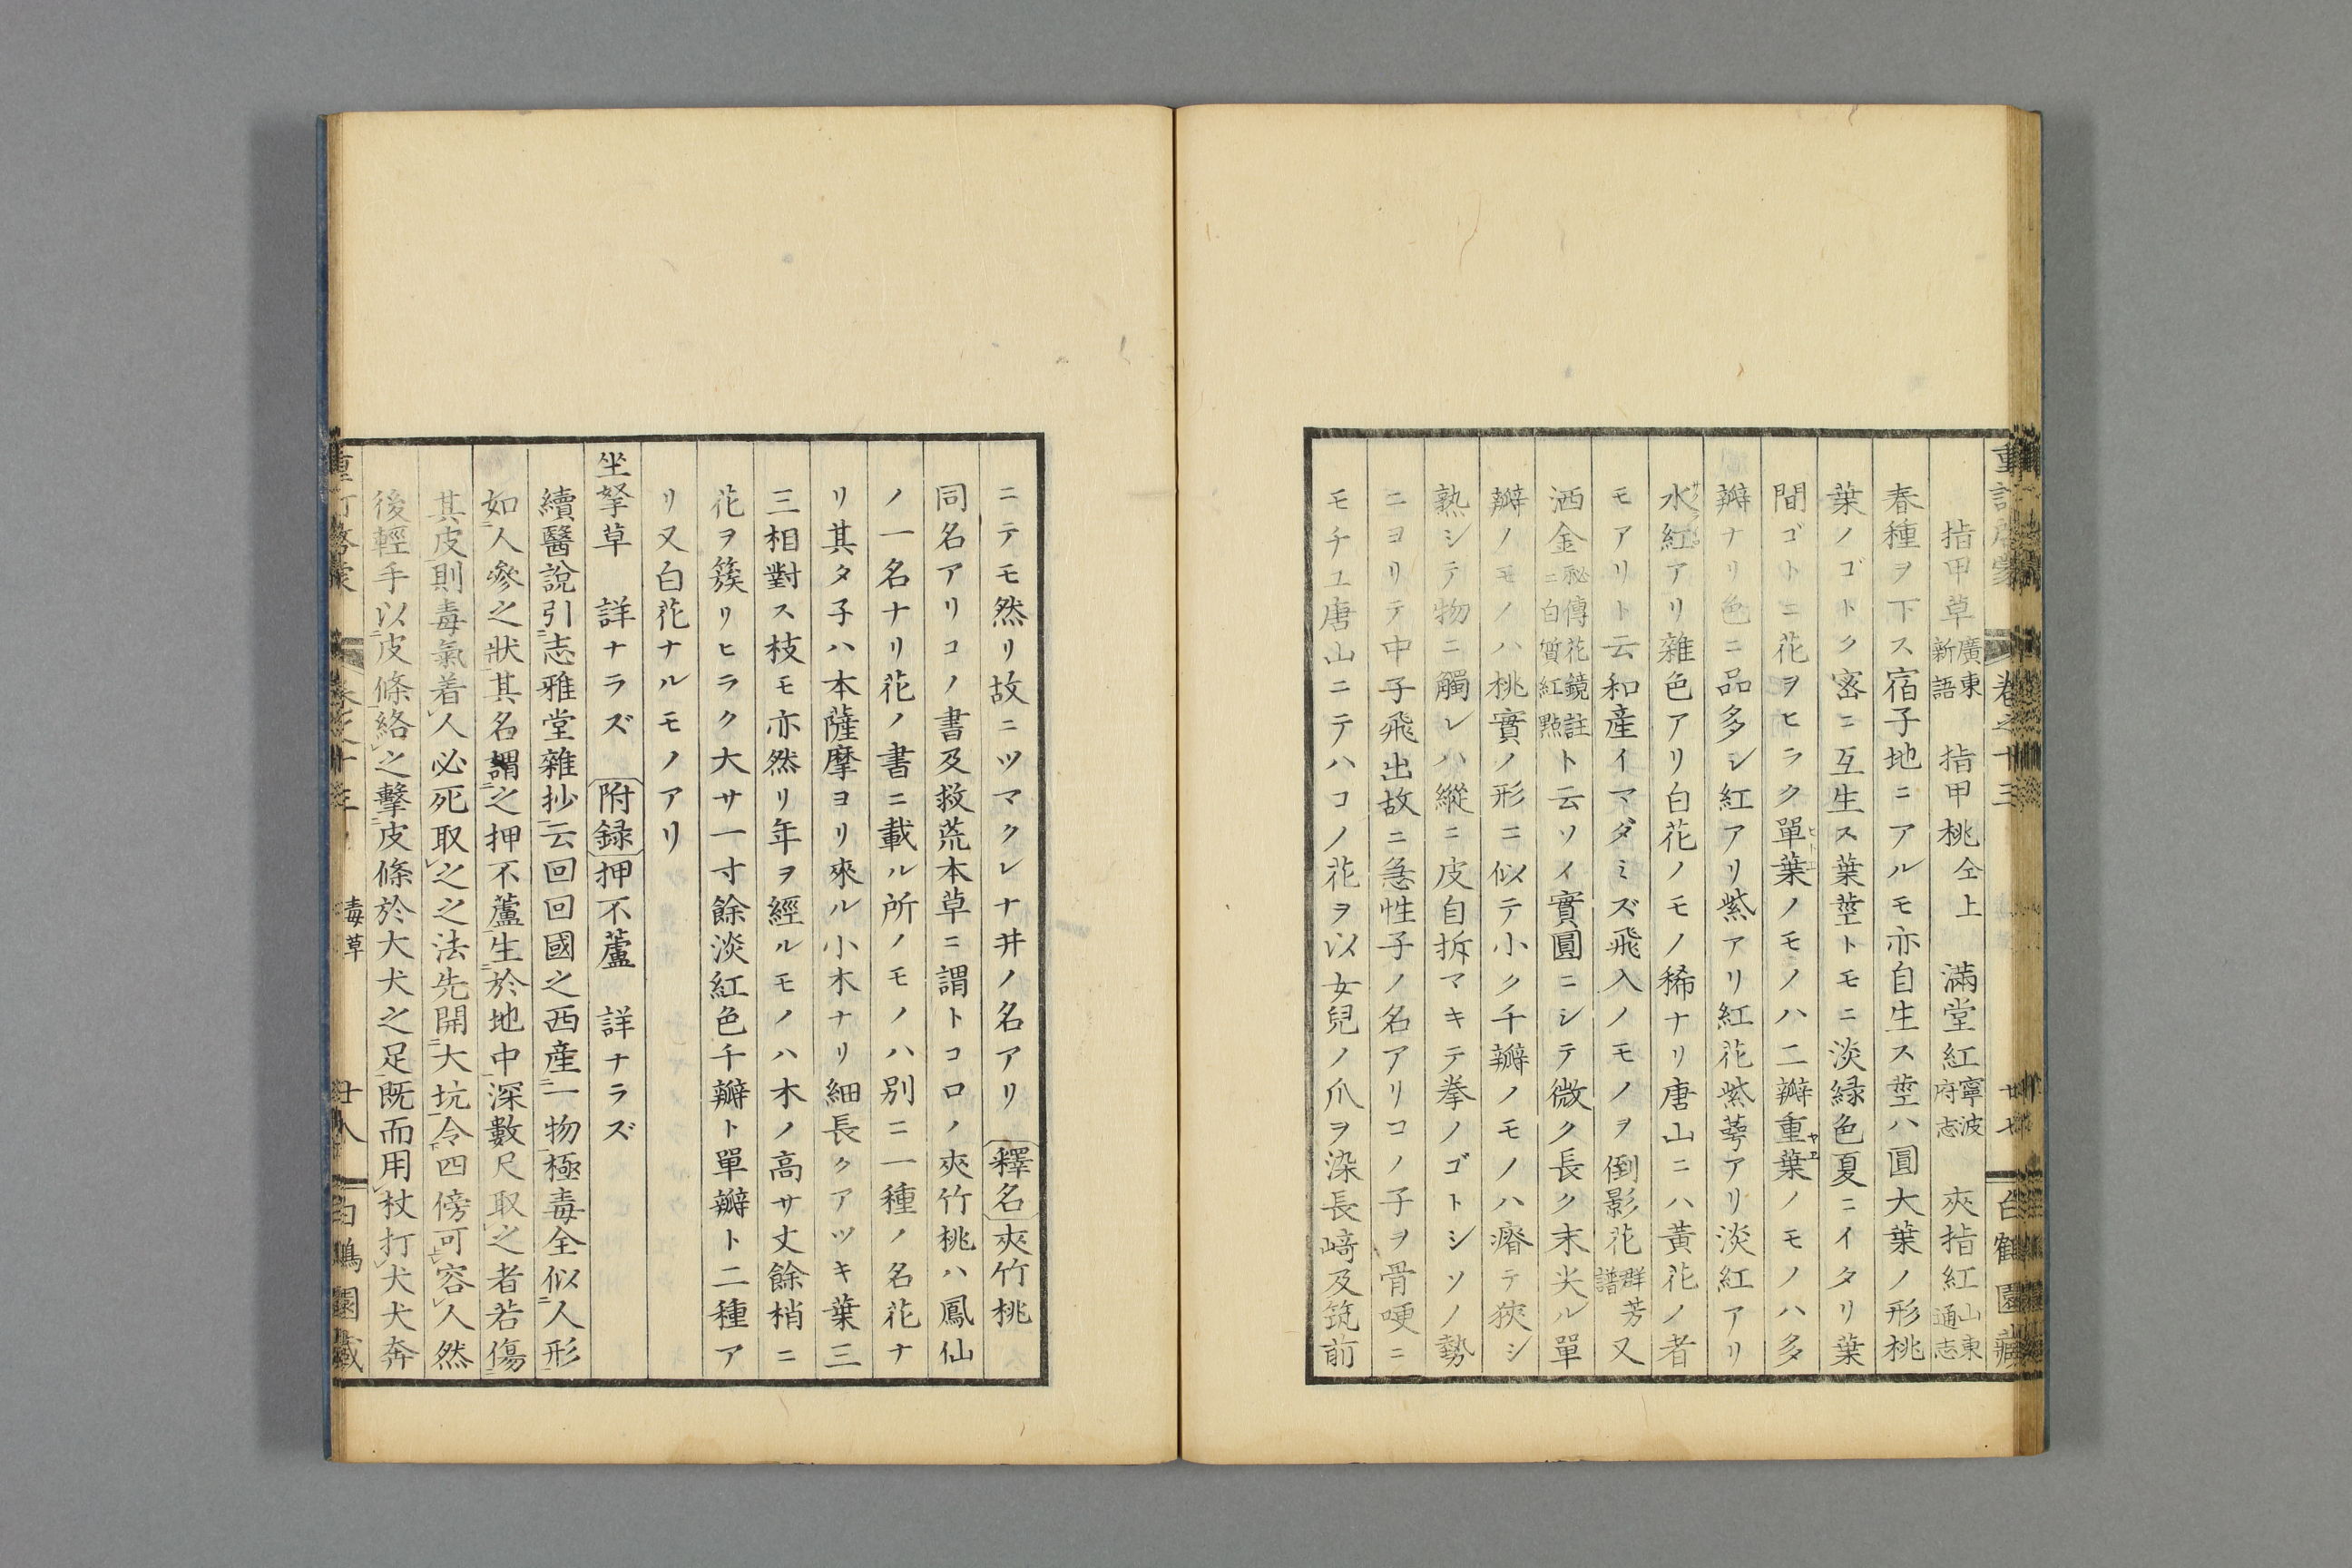 指甲草廣東新語　指甲桃仝上　滿堂紅寧波府志　夾指紅山東通志
春種ヲ下ス宿子地ニアルモ亦自生ス莖ハ圓大葉ノ形桃
葉ノゴトク密ニ互生ス葉莖トモニ淡緑色夏ニイタリ葉
間ゴトニ花ヲヒラク單葉ノモノハ二瓣重葉ノモノハ多
瓣ナリ色ニ品多シ紅アリ紫アリ紅花紫萼アリ淡紅アリ
水紅アリ雜色アリ白花ノモノ稀ナリ唐山ニハ黃花ノ者
モアリト云和産イマダミズ飛入ノモノヲ倒影花群芳譜又
洒金秘傳花鏡註ニ白質紅點ト云ソノ實圓ニシテ微ク長ク末尖ル單
瓣ノモノハ桃實ノ形ニ似テ小ク千瓣ノモノハ瘠テ狹シ
熟シテ物ニ觸レハ縱ニ皮自拆マキテ拳ノゴトシソノ勢
ニヨリテ中子飛出故ニ急性子ノ名アリコノ子ヲ骨哽ニ
モチユ唐山ニテハコノ花ヲ以女兒ノ爪ヲ染長﨑及筑前
ニテモ然リ故ニツマクレナ井ノ名アリ　釋名夾竹桃
同名アリコノ書及救荒本草ニ謂トコロノ夾竹桃ハ鳳仙
ノ一名ナリ花ノ書ニ載ル所ノモノハ別ニ一種ノ名花ナ
リ其タ子ハ本薩摩ヨリ來ル小木ナリ細長クアツキ葉三
三相對ス枝モ亦然リ年ヲ經ルモノハ木ノ高サ丈餘梢ニ
花ヲ簇リヒラク大サ一寸餘淡紅色千瓣ト單瓣ト二種ア
リ又白花ナルモノアリ
坐拏草　詳ナラズ　附録押不蘆　詳ナラズ
續醫說引志雅堂雜抄云回回國之西産一物極毒全似人形
如人參之狀其名謂之押不蘆生於地中深數尺取之者若傷
其皮則毒氣着人必死取之之法先開大坑令四傍可容人然
後輕手以皮條絡之擊皮條於大犬之足既而用杖打犬犬奔
毒草